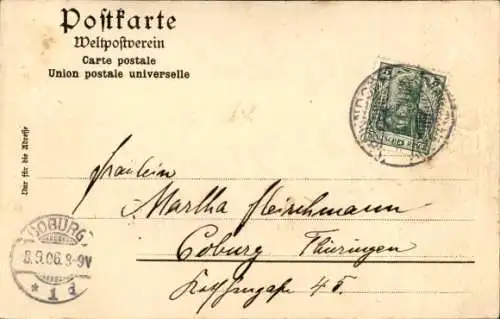 Postkarte
Weltpostverein
Carte postale
Union postale universelle
Nur für die Adresse
Fräulein
Martha Fleischmann
Coburg Thüringen
45.
COBURG
8.9.06.8-9V
* 1 d